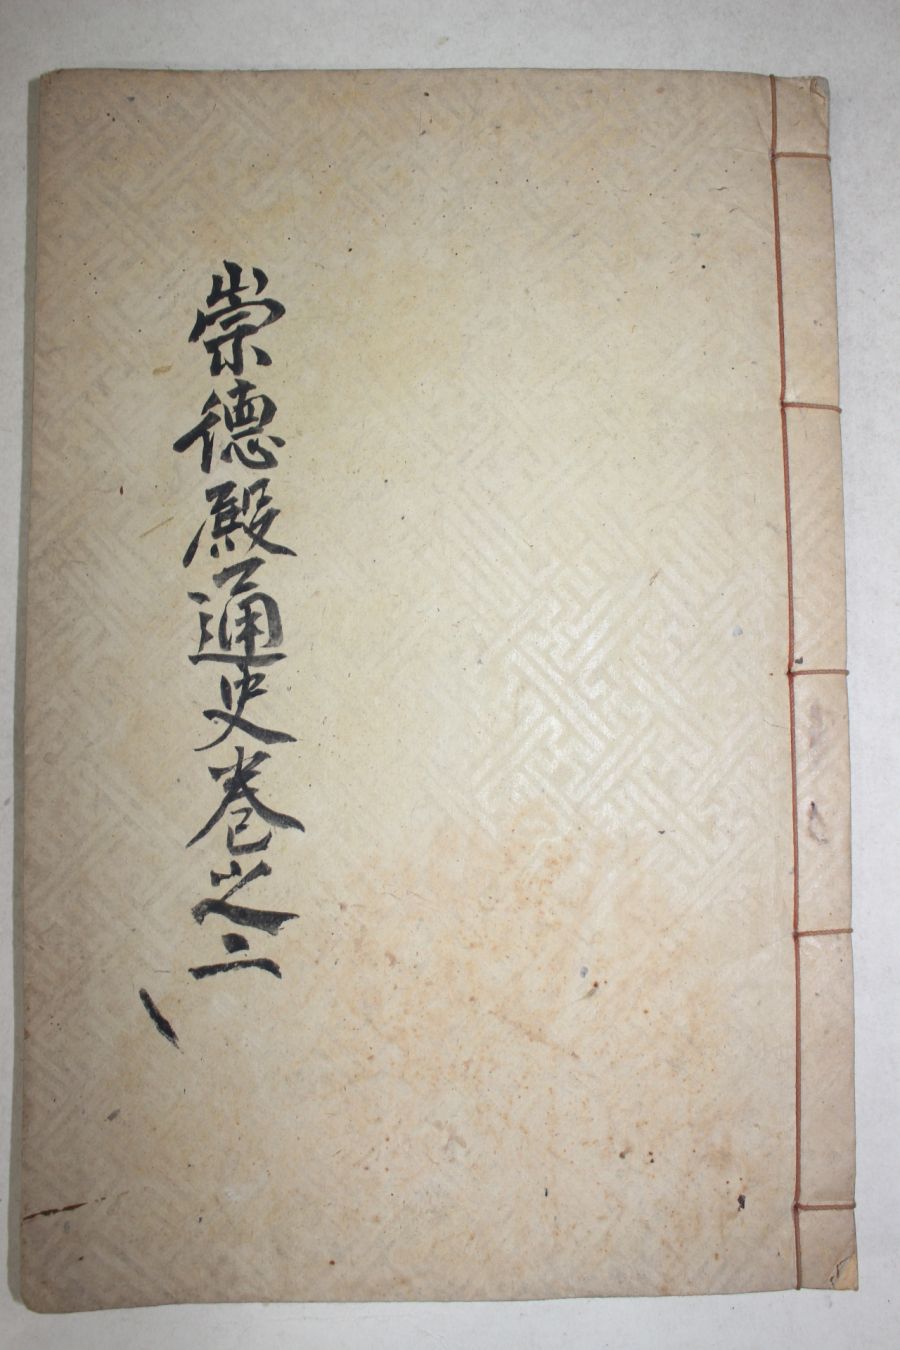 崇德殿通史卷之二